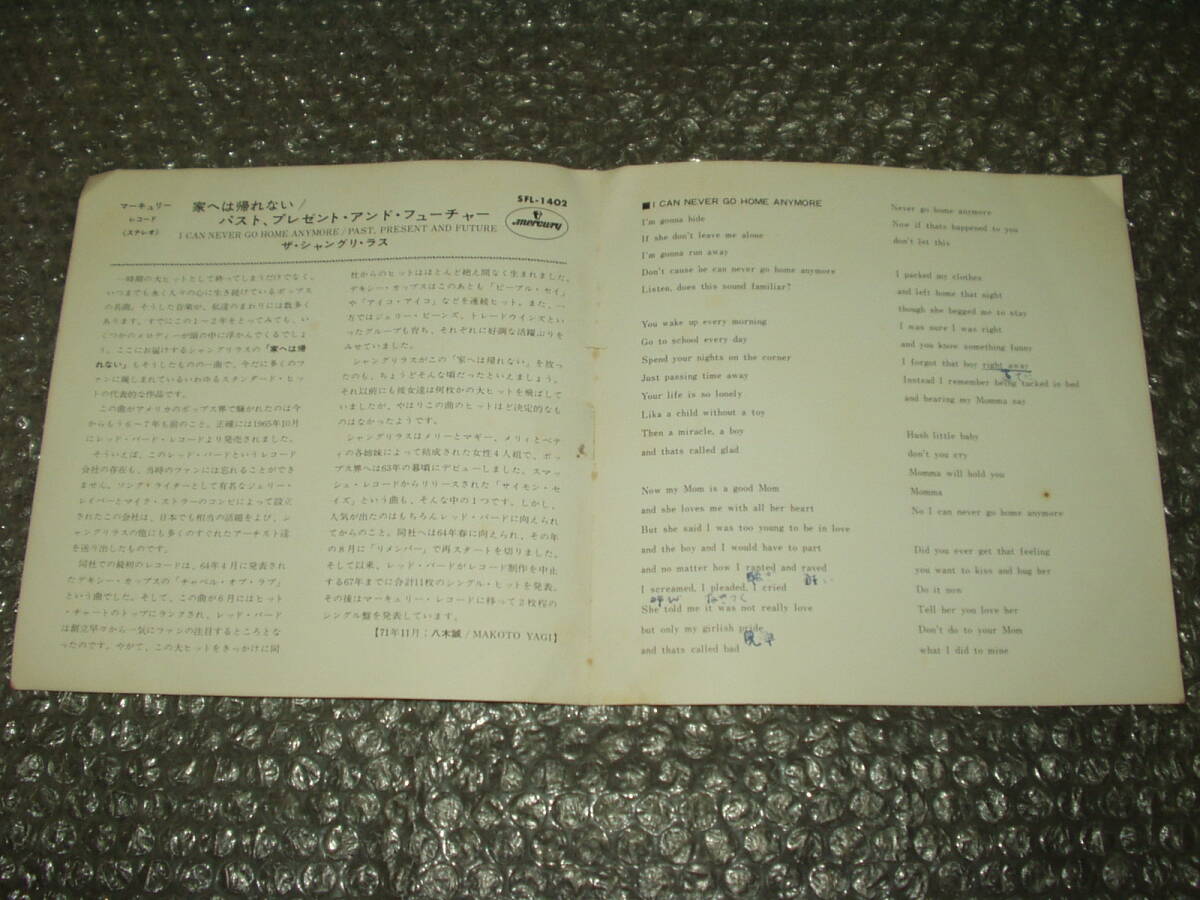 マーキュリー
レコード
(ステレオ)
家へは帰れない/
パスト、プレゼント・アンド・フューチャー
I CAN NEVER GO HOME ANYMORE / PAST, PRESENT AND FUTURE
ザ・シャングリ・ラス
SFL-1402
mercury
一時期の大ヒットとして終ってしまうだけでなく、
いつまでも永く人々の心に生き続けているポップス
の名曲。そうした音楽が、私達のまわりには数多く
あります。すでにこの1〜2年をとってみても、い
くつかのメロディーが頭の中に浮かんでくるでしょ
う。ここにお届けするシャングリラスの「家へは帰
れない」もそうしたものの一曲で、今だに多くのフ
ァンに親しまれているいわゆるスタンダード・ヒッ
トの代表的な作品です。
この曲がアメリカのポップス界で騒がれたのは今
からもう6〜7年も前のこと。正確には1965年10月
にレッド・バード・レコードより発売されました。
そういえば、このレッド・バードというレコード
会社の存在も、当時のファンには忘れることができ
ません。ソング・ライターとして有名なジェリー・
レイバーとマイク・ストラーのコンビによって設立
されたこの会社は、日本でも相当の話題をよび、シ
ャングリラスの他にも多くのすぐれたアーチスト達
を送り出したものです。
同社での最初のレコードは、64年4月に発表され
たデキシー・カップスの「チャペル・オブ・ラブ」
という曲でした。そして、この曲が6月にはヒット
・チャートのトップにランクされ、レッド・バード
は創立早々から一気にファンの注目するところとな
ったのです。やがて、この大ヒットをきっかけに同
社からのヒットはほとんど絶え間なく生まれました。
デキシー・カップスはこのあとも「ピープル・セイ」
や「アイコ・アイコ」などを連続ヒット。また、一
方ではジェリー・ビーンズ、トレードウインズとい
ったグループも育ち、それぞれに好調な活躍ぶりを
みせていました。
シャングリラスがこの「家へは帰れない」を放っ
たのも、ちょうどそんな頃だったといえましょう。
それ以前にも彼女達は何枚かの大ヒットを飛ばして
いましたが、やはりこの曲のヒットほど決定的なも
のはなかったようです。
シャングリラスはメリーとマギー、メリィとベテ
ィの各姉妹によって結成された女性4人組で、ポッ
プス界へは63年の暮頃にデビューしました。スマッ
シュ・レコードからリリースされた「サイモン・セ
イズ」という曲も、そんな中の1つです。しかし、
人気が出たのはもちろんレッド・バードに迎えられ
てからのこと。同社へは64年春に迎えられ、その年
の8月に「リメンバー」で再スタートを切りました。
そして以来、レッド・バードがレコード制作を中止
する67年までに合計11枚のシングル・ヒットを発表、
その後はマーキュリー・レコードに移って2枚程の
シングル盤を発表しています。
【71年11月：八木誠/MAKOTO YAGI】
■I CAN NEVER GO HOME ANYMORE
I'm gonna hide
If she don't leave me alone
I'm gonna run away
Don't cause he can never go home anymore
Listen, does this sound familiar?
You wake up every morning
Go to school every day
Spend your nights on the corner
Just passing time away
Your life is so lonely
Lika a child without a toy
Then a miracle, a boy
and thats called glad
Now my Mom is a good Mom
and she loves me with all her heart
But she said I was too young to be in love
and the boy and I would have to part
and no matter how I ranted and raved
I screamed, I pleaded, I cried
She told me it was not really love
but only my girlish pride
and thats called bad
Never go home anymore
Now if thats happened to you
don't let this
I packed my clothes
and left home that night
though she begged me to stay
I was sure I was right
and you know something funny
I forgot that boy right away
Instead I remember being tucked in bed
and hearing my Momma say
Hush little baby
don't you cry
Momma will hold you
Momma
No I can never go home anymore
Did you ever get that feeling
you want to kiss and hug her
Do it now
Tell her you love her
Don't do to your Mom
what I did to mine